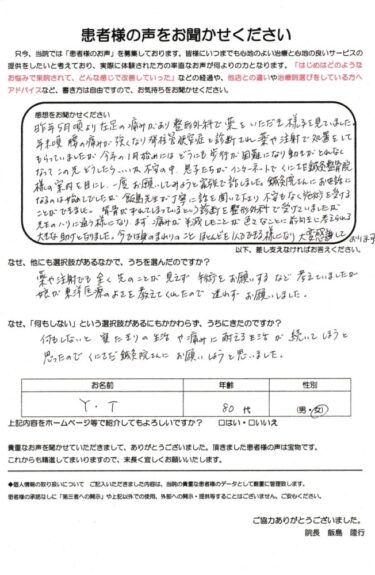 患者様の声をお聞かせください
只今、当院では「患者様のお声」を募集しております。皆様にいつまでも心地のよい治療と心地の良いサービスの
提供をしたいと考えており、実際に体験された方の率直なお声が何よりの力となります。「はじめはどのような
お悩みで来院されて、どんな感じで改善していった」などの経過や、他店との違いや治療院選びをしている方へ
アドバイスなど、書き方は自由ですので、お気持ちをお聞かせください。
感想をお聞かせください
昨年5月頃より左足の痛みがあり整形外科で薬をいただき様子を見ていました。
年末頃 腰の痛みが強くなり脊柱管狭窄症と診断され薬や注射で処置をして
もらっていましたが 今年の1月始めには どうにも歩行が困難になり動きがとれなく
なってこの先どうしたらいいか不安の中、息子たちがインターネットでくにさだ鍼灸整骨院
様の案内を目にし、一度お願いしてみようと電話で話しました。鍼灸院さんにお世話に
なるのは初めてでしたが飯島先生が丁寧に話を聞いて下さり不安もなく施術を受ける
ことができました。
先生のハリに通う様になり
大きな助けとなりました。今では身のまわりのことほとんどを
大変感謝しております
以下、差し支えなければお答えください。
なぜ、他にも選択肢があるなかで、うちを選んだのですか?
薬や注射でも全く先のことが見えず 手術をお願いするなど考えていましたが
東洋医療のよさを教えてくれたので 迷わずお願いしました。
なぜ、「何もしない」という選択肢があるにもかかわらず、うちにきたのですか?
何もしないと寝たきりの生活や痛みに耐える生活が続いてしまうと
思ったのでくにさだ鍼灸院さんにお願いしようと思いました。
お名前 年齢 性別
Y・T 80代 (男・女)
上記内容をホームページ等で紹介してもよろしいですか? □はい・□いいえ
貴重なお声を聞かせていただきまして、ありがとうございました。頂きました患者様の声は宝物です。
これからも精進してまいりますので、末長く宜しくお願いいたします。
◆個人情報の取り扱いについて ご記入いただきました内容は、当院の貴重な患者様のデータとして厳重に管理致します。
患者様の承諾なしに「第三者への開示」や上記以外での使用、外部への開示・提供等することはございません。ご安心ください。
ご協力ありがとうございました。
院長 飯島 隆行